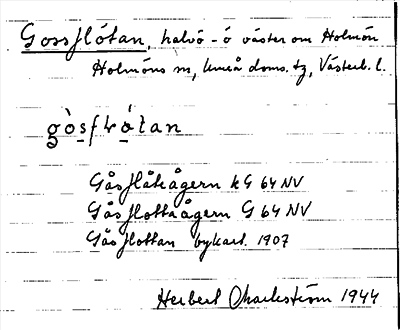 Gossflótan, halvö-ö väster om Holmön
Holmöns sn, Umeå doms. tg, Västerb. l.
gòsfɬótan
Gåsflåtågern kG 64 NV
Gåsflottågern G 64 NV
Gåsflottan bykart. 1907
Herbert Charleström 1944